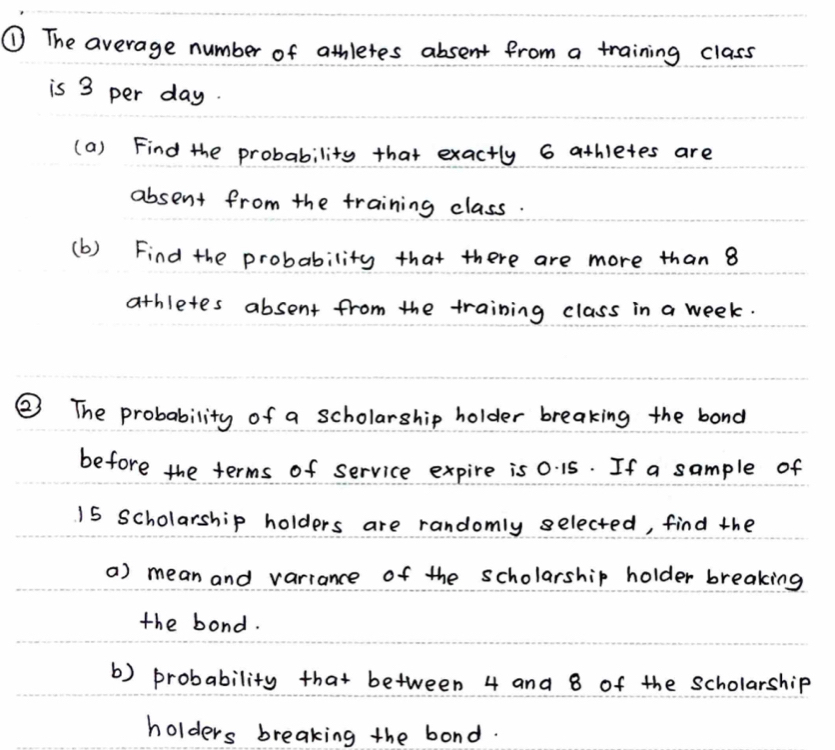 ① The average number of athletes absent from a training class
is 3 per day.
(a) Find the probability that exactly 6 athletes are
absent from the training class.
(b) Find the probability that there are more than 8
athletes absent from the training class in a week.
② The probability of a scholarship holder breaking the bond
before the terms of service expire is 0.15. If a sample of
15 scholarship holders are randomly selected, find the
a) mean and variance of the scholarship holder breaking
the bond.
b) probability that between 4 and 8 of the scholarship
holders breaking the bond.